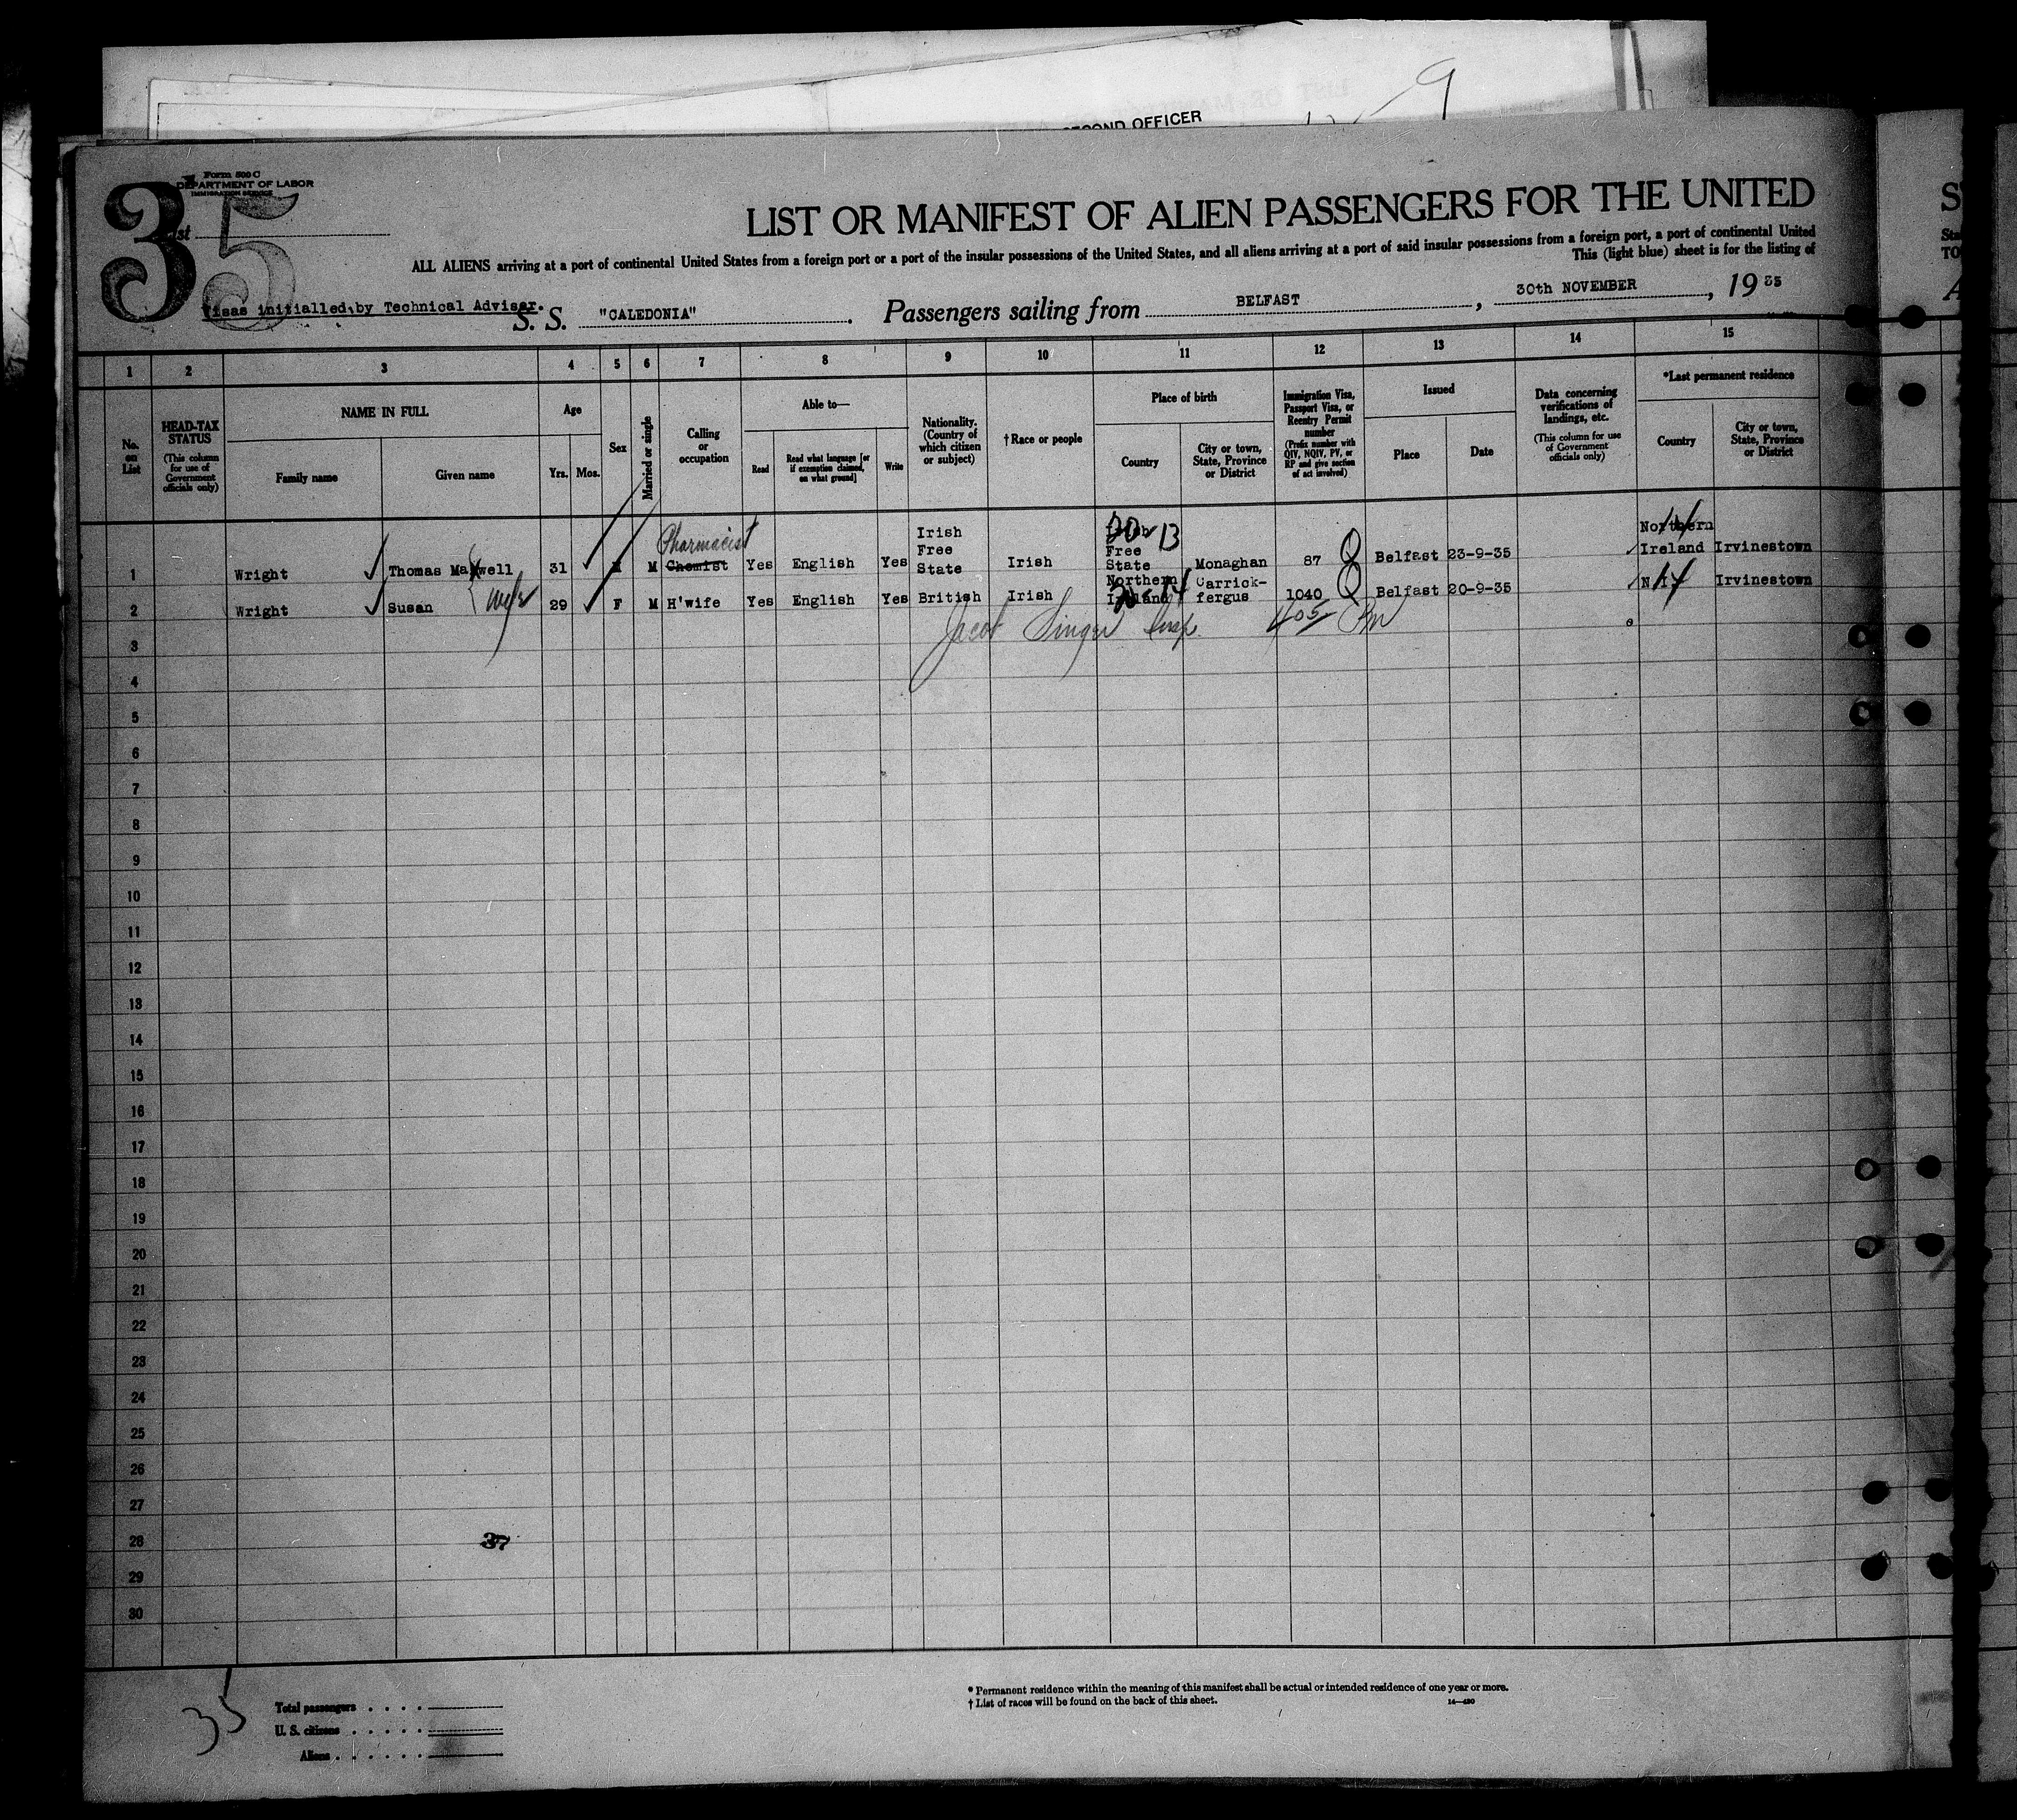 9
SECOND OFFICER
Form 500 C
DEPARTMENT OF LABOR
IMMIGRATION SERVICE
35
LIST OR MANIFEST OF ALIEN PASSENGERS FOR THE UNITED
ALL ALIENS arriving at a port of continental United States from a foreign port or a port of the insular possessions of the United States, and all aliens arriving at a port of said insular possessions from a foreign port, a port of continental United
This (light blue) sheet is for the listing of
Visas initialled by Technical Adviser.
S. S. "CALEDONIA". Passengers sailing from BELFAST, 30th NOVEMBER, 19 35
1 2 3 4 5 6 7 8 9 10 11 12 13 14 15
No. on List
HEAD-TAX STATUS (This column for use of Government officials only)
NAME IN FULL
Family name Given name
Age
Yrs. Mos.
Sex
Married or single
Calling or occupation
Able to—
Read Read what language [or if exemption claimed, on what ground] Write
Nationality. (Country of which citizen or subject)
†Race or people
Place of birth
Country City or town, State, Province or District
Immigration Visa, Passport Visa, or Reentry Permit number (Prefix number with QIV, NQIV, PV, or RP and give section of act involved)
Issued
Place Date
Data concerning verifications of landings, etc. (This column for use of Government officials only)
*Last permanent residence
Country City or town, State, Province or District
Pharmacist
1 Wright Thomas Maxwell 31 M M Chemist Yes English Yes Irish Free State Irish Irish Free State Monaghan 87 Belfast 23-9-35 Northern Ireland Irvinestown
2 Wright Susan 29 F M H'wife Yes English Yes British Irish Northern Ireland Carrick-fergus 1040 Belfast 20-9-35 N.I. Irvinestown
Jacob Singer Insp. 405 PM
3
4
5
6
7
8
9
10
11
12
13
14
15
16
17
18
19
20
21
22
23
24
25
26
27
28
29
30
37
35
Total passengers
U. S. citizens
Aliens
* Permanent residence within the meaning of this manifest shall be actual or intended residence of one year or more.
† List of races will be found on the back of this sheet.
14—490